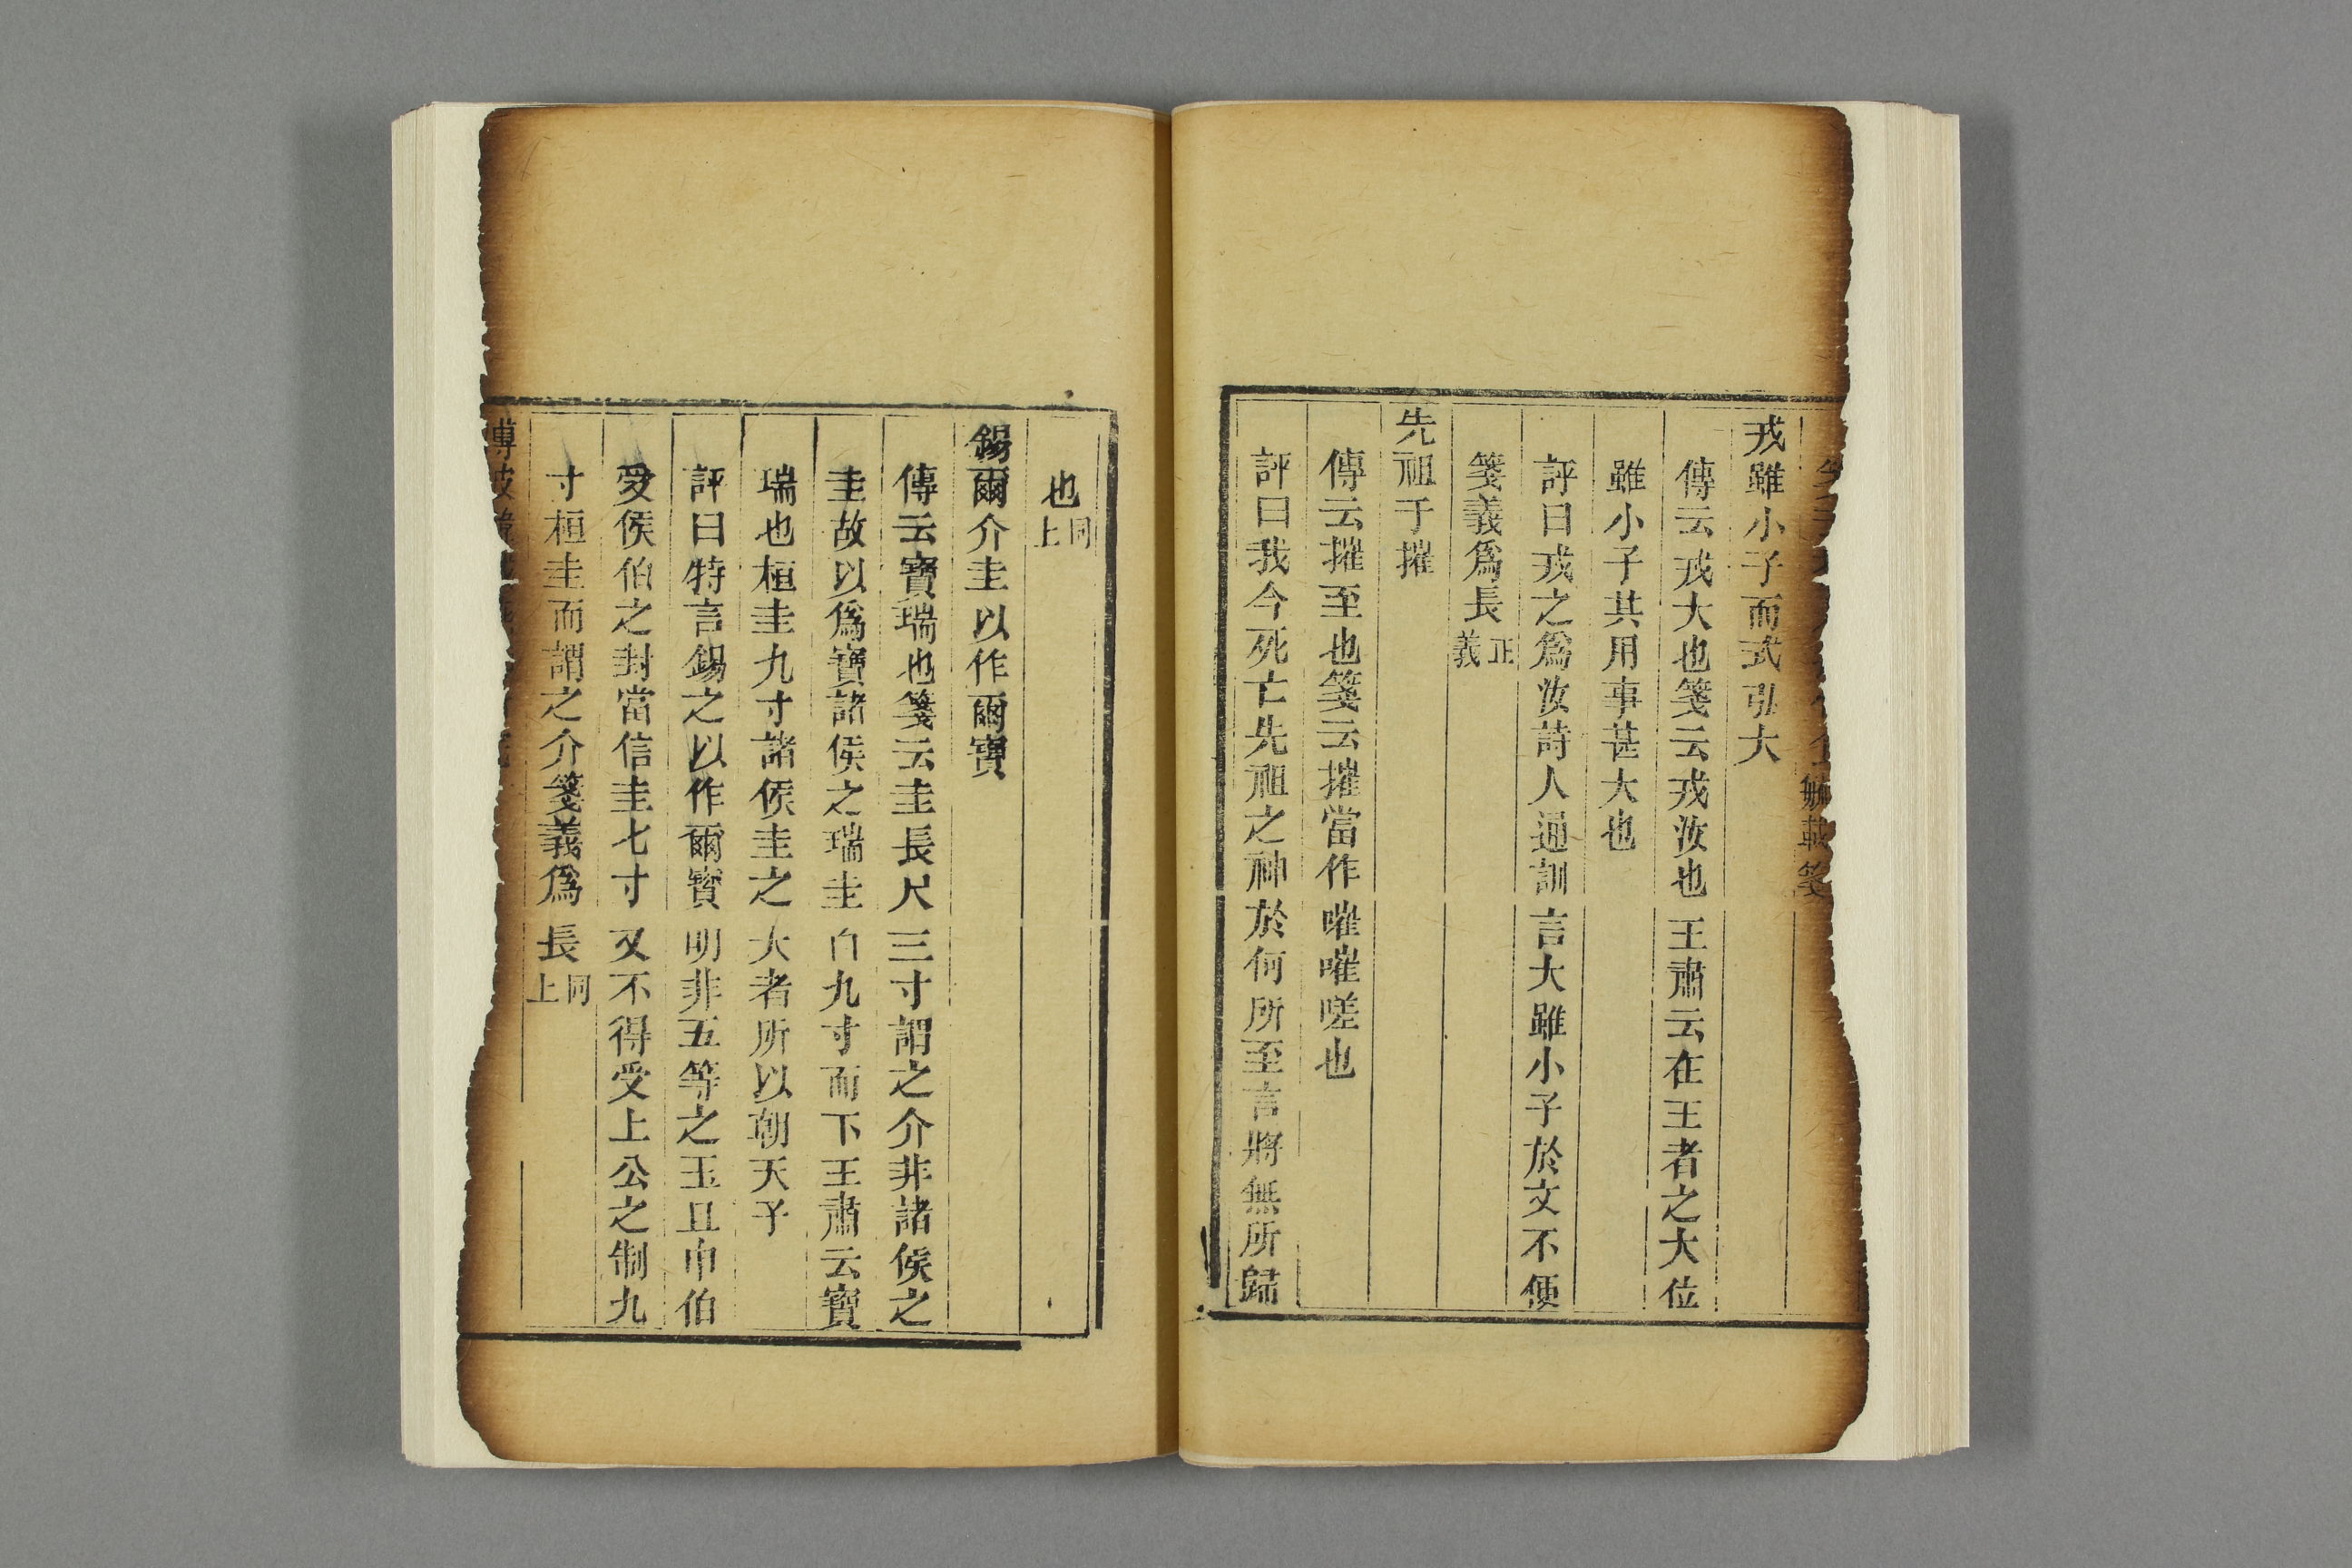 戎雖小子而式弘大
傳云戎大也箋云戎汝也王肅云在王者之大位
雖小子其用事甚大也
評曰戎之爲汝詩人通訓言大雖小子於文不便
箋義爲長正義
先祖于摧
傳云摧至也箋云摧當作嗺嗺嗟也
評曰我今死亡先祖之神於何所至言將無所歸
也同上
錫爾介圭以作爾寶
傳云寶瑞也箋云圭長尺三寸謂之介非諸侯之
圭故以爲寶諸侯之瑞圭自九寸而下王肅云寶
瑞也桓圭九寸諸侯圭之大者所以朝天子
評曰特言錫之以作爾寶明非五等之玉且申伯
受侯伯之封當信圭七寸又不得受上公之制九
寸桓圭而謂之介箋義爲長同上